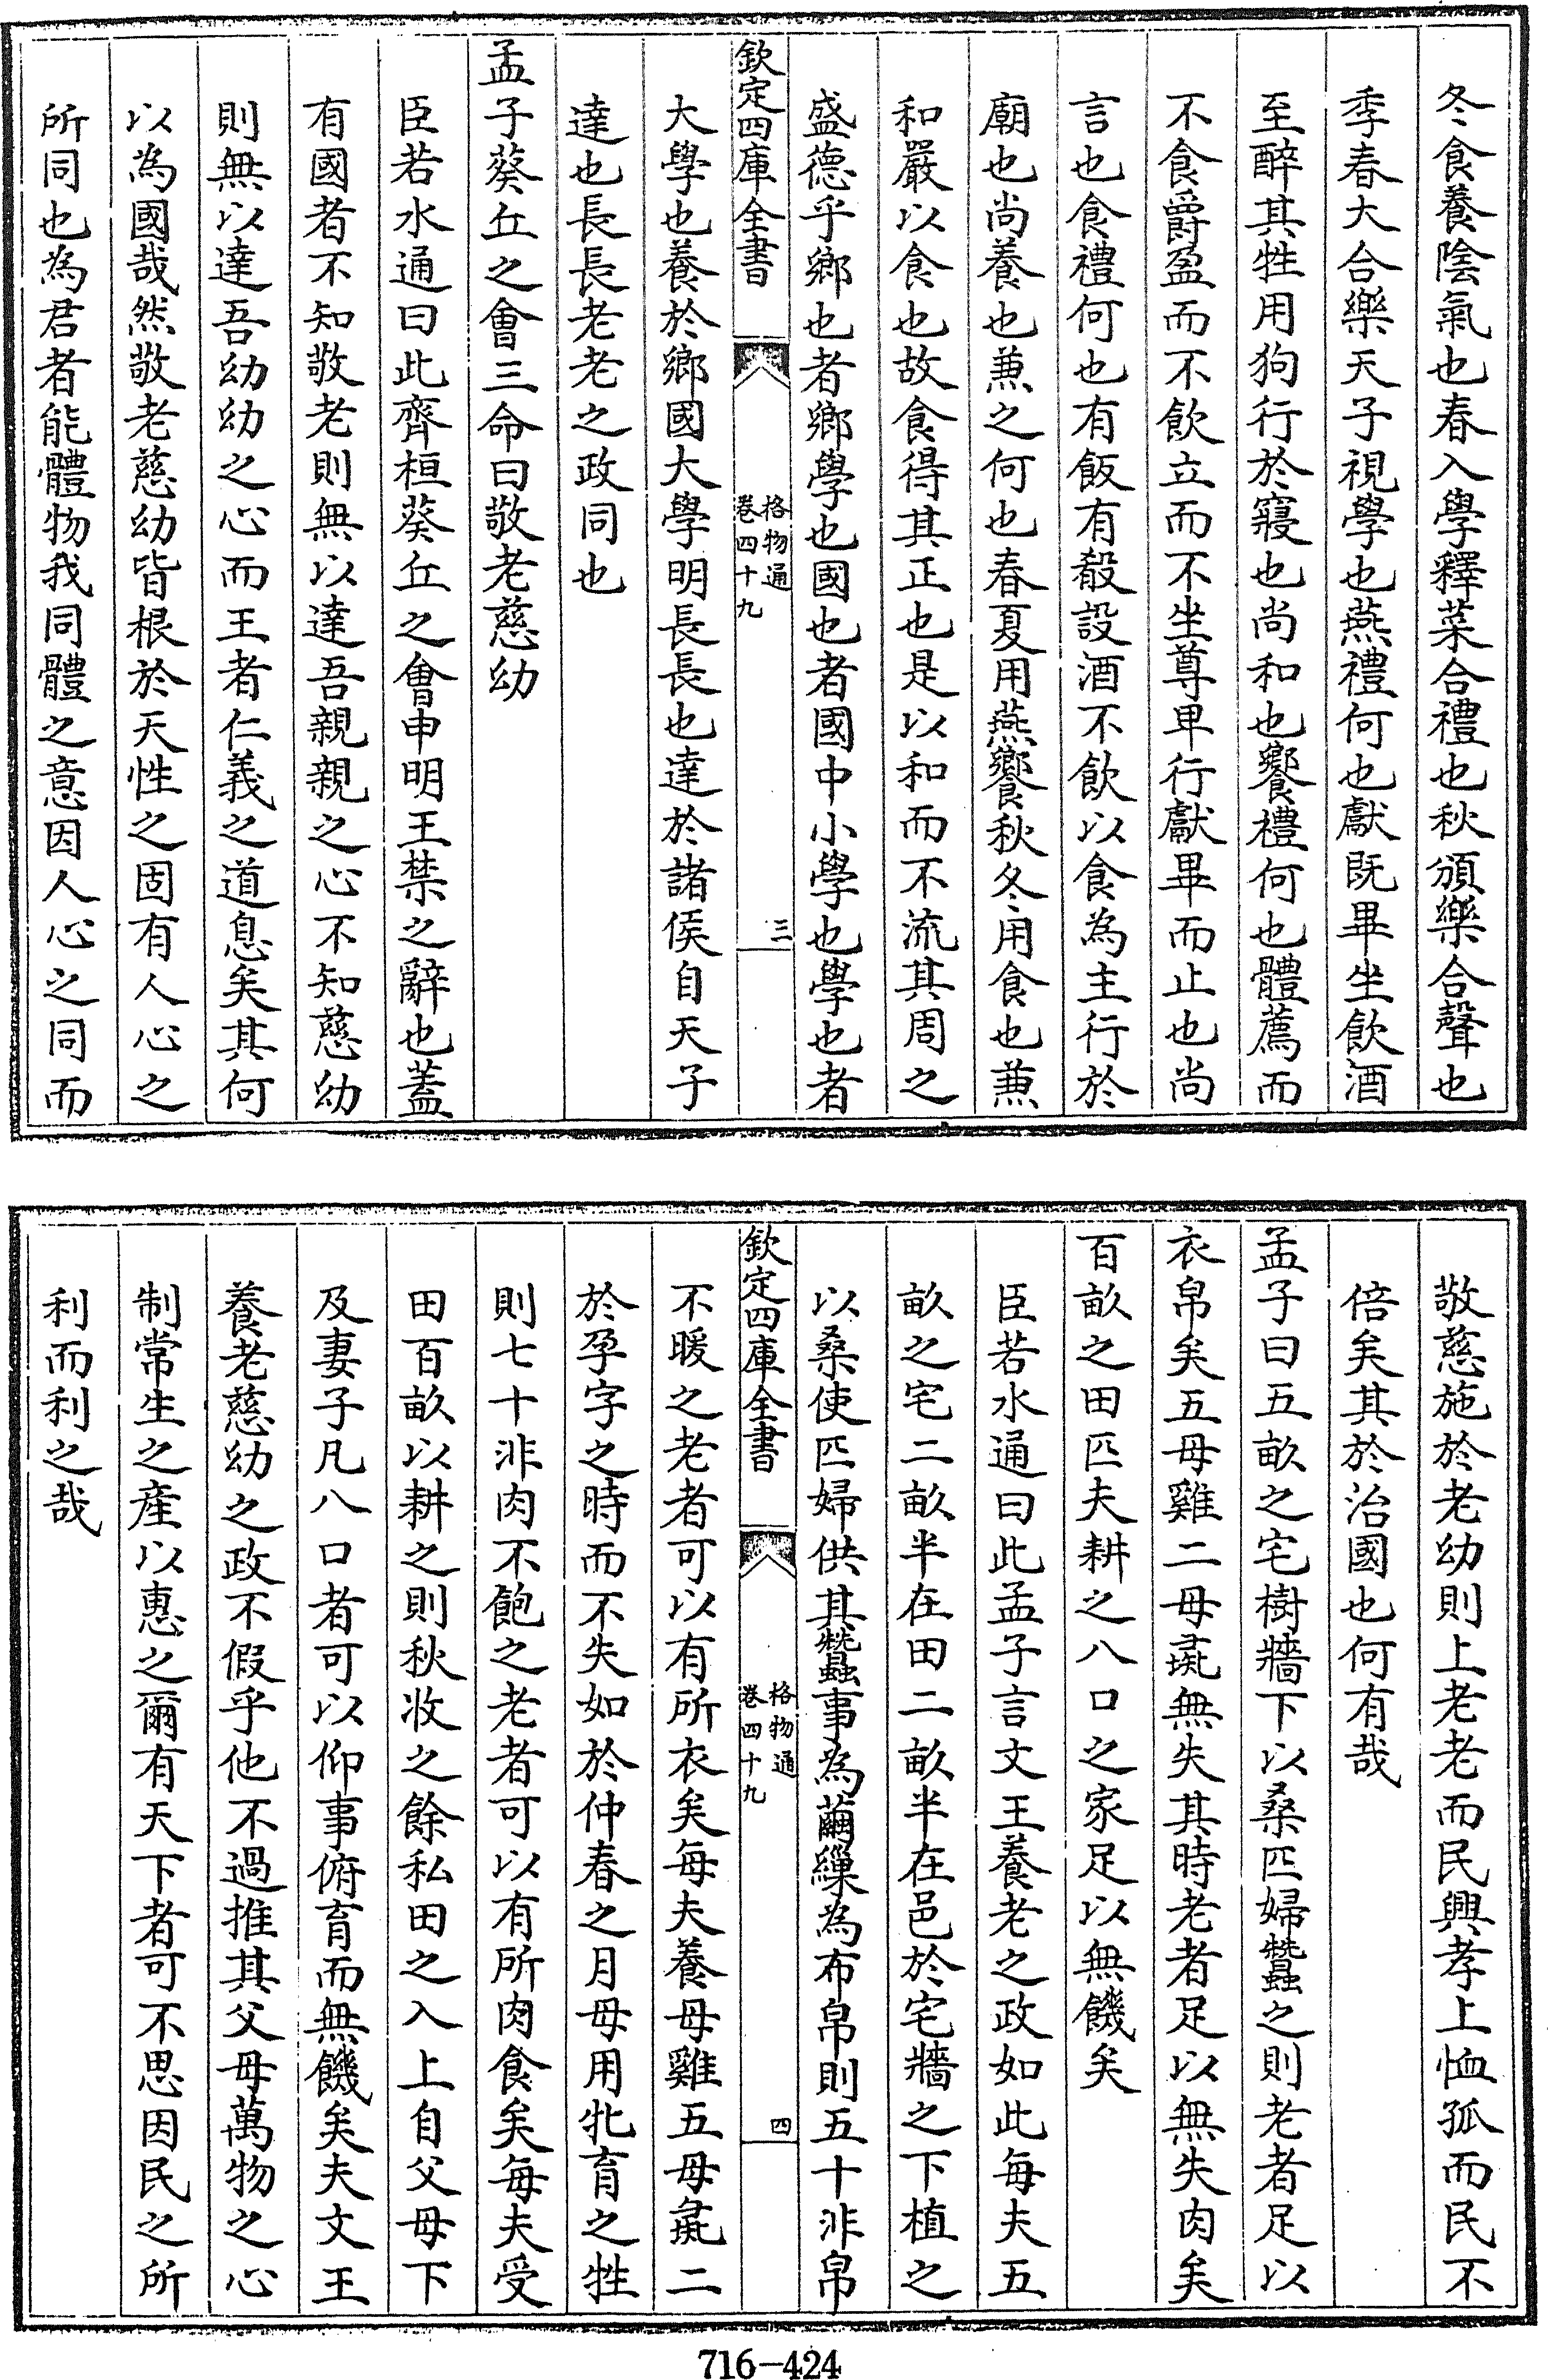 冬食養陰氣也春入學釋菜合禮也秋頒樂合聲也
季春大合樂天子視學也燕禮何也獻既畢坐飲酒
至醉其牲用狗行於寢也尚和也饗禮何也體薦而
不食爵盈而不飲立而不坐尊卑行獻畢而止也尚
言也食禮何也有飯有殽設酒不飲以食為主行於
廟也尚養也兼之何也春夏用燕饗秋冬用食也兼
和嚴以食也故食得其正也是以和而不流其周之
盛德乎鄉也者鄉學也國也者國中小學也學也者
欽定四庫全書
格物通
卷四十九
三
大學也養於鄉國大學明長長也達於諸侯自天子
達也長長老老之政同也
孟子葵丘之會三命曰敬老慈幼
臣若水通曰此齊桓葵丘之會申明王禁之辭也蓋
有國者不知敬老則無以達吾親親之心不知慈幼
則無以達吾幼幼之心而王者仁義之道息矣其何
以為國哉然敬老慈幼皆根於天性之固有人心之
所同也為君者能體物我同體之意因人心之同而
敬慈施於老幼則上老老而民興孝上恤孤而民不
倍矣其於治國也何有哉
孟子曰五畝之宅樹牆下以桑匹婦蠶之則老者足以
衣帛矣五母雞二母彘無失其時老者足以無失肉矣
百畝之田匹夫耕之八口之家足以無饑矣
臣若水通曰此孟子言文王養老之政如此每夫五
畝之宅二畝半在田二畝半在邑於宅牆之下植之
以桑使匹婦供其蠶事為繭繅為布帛則五十非帛
欽定四庫全書
格物通
卷四十九
四
不暖之老者可以有所衣矣每夫養母雞五母彘二
於孕字之時而不失如於仲春之月毋用牝育之牲
則七十非肉不飽之老者可以有所肉食矣每夫受
田百畝以耕之則秋收之餘私田之入上自父母下
及妻子凡八口者可以仰事俯育而無饑矣夫文王
養老慈幼之政不假乎他不過推其父母萬物之心
制常生之產以惠之爾有天下者可不思因民之所
利而利之哉
716-424